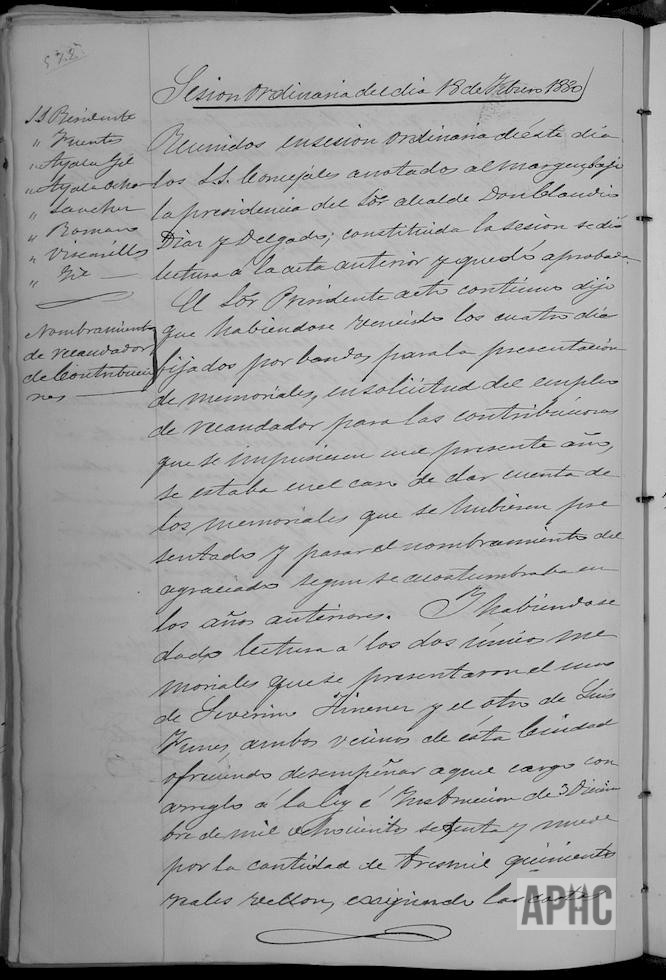 572
Sesion ordinaria del dia 18 de Febrero 1880
SS Presidente
" Fuentes
" Ayala Gil
" Ayala Ocho
" Sanchez
" Romano
" Viscarillas
" Gil
Nombramiento
de recaudador
de Contribucio
nes
Reunidos en sesion ordinaria de éste dia
los S.S. Concejales anotados al margen, bajo
la presidencia del Sor. alcalde Don Claudio
Diaz y Delgado; constituida la sesion se dió
lectura á la acta anterior y quedó aprobada.
El Sor Presidente acto contínuo dijo
que habiendose vencido los cuatro dias
fijados por bandos para la presentacion
de memoriales, en solicitud del empleo
de recaudador para las contribuciones
que se impusiesen en el presente año,
se estaba en el caso de dar cuenta de
los memoriales que se hubiesen pre
sentado y pasar al nombramiento del
agraciado segun se acostumbraba en
los años anteriores. Y habiendose
dado lectura á los dos únicos me
moriales que se presentaron el uno
de Severino Ximenez y el otro de Luis
Funes, ambos vecinos de ésta Ciudad
ofreciendo desempeñar aquel cargo con
arreglo á la ley é Instruccion de 3 Diciem
bre de mil ochocientos setenta y nueve
por la cantidad de tres mil quinientos
reales vellon, exsigiendo las
APHC